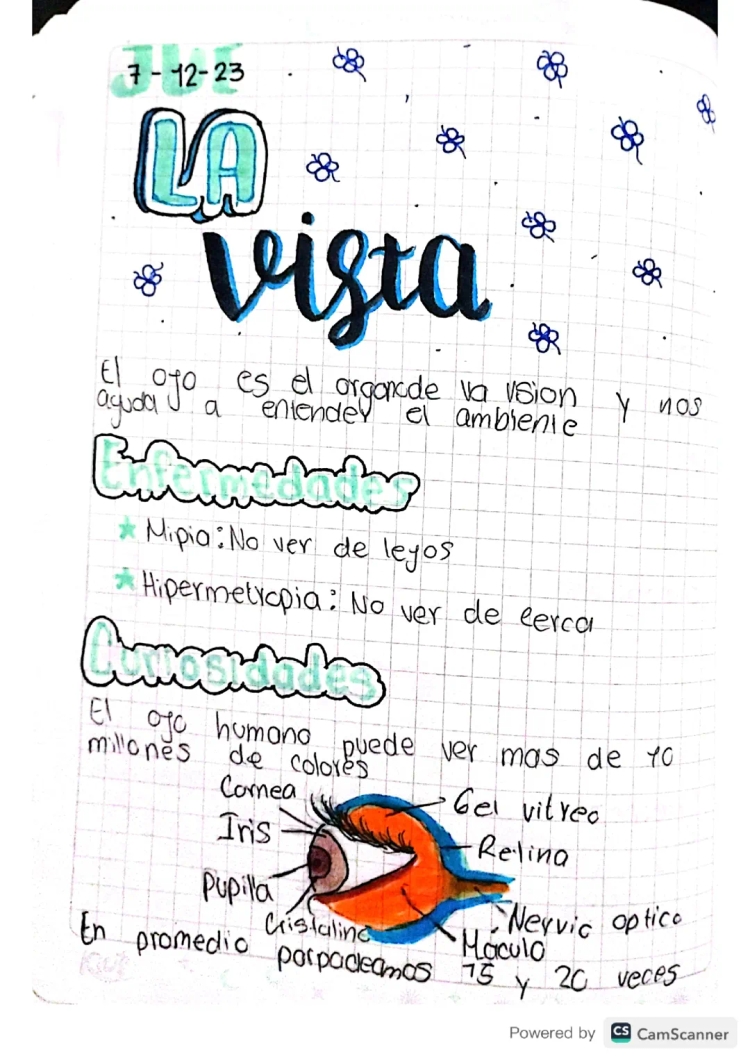 JUE
7-12-23
LA
vista
El ojo es el organo de la vision y nos
ayuda a entender el ambiente
Enfermedades
★ Mipia: No ver de leyos
★ Hipermetropia: No ver de cerca
Curiosidades
El ojo humano puede ver mas de 10
millones de colores
Cornea
Gel vitreo
Iris
Retina
Pupilla
Nervio optico
Cristalino
Máculo
En promedio parpadeamos 15 y 20 veces
Powered by CS CamScanner